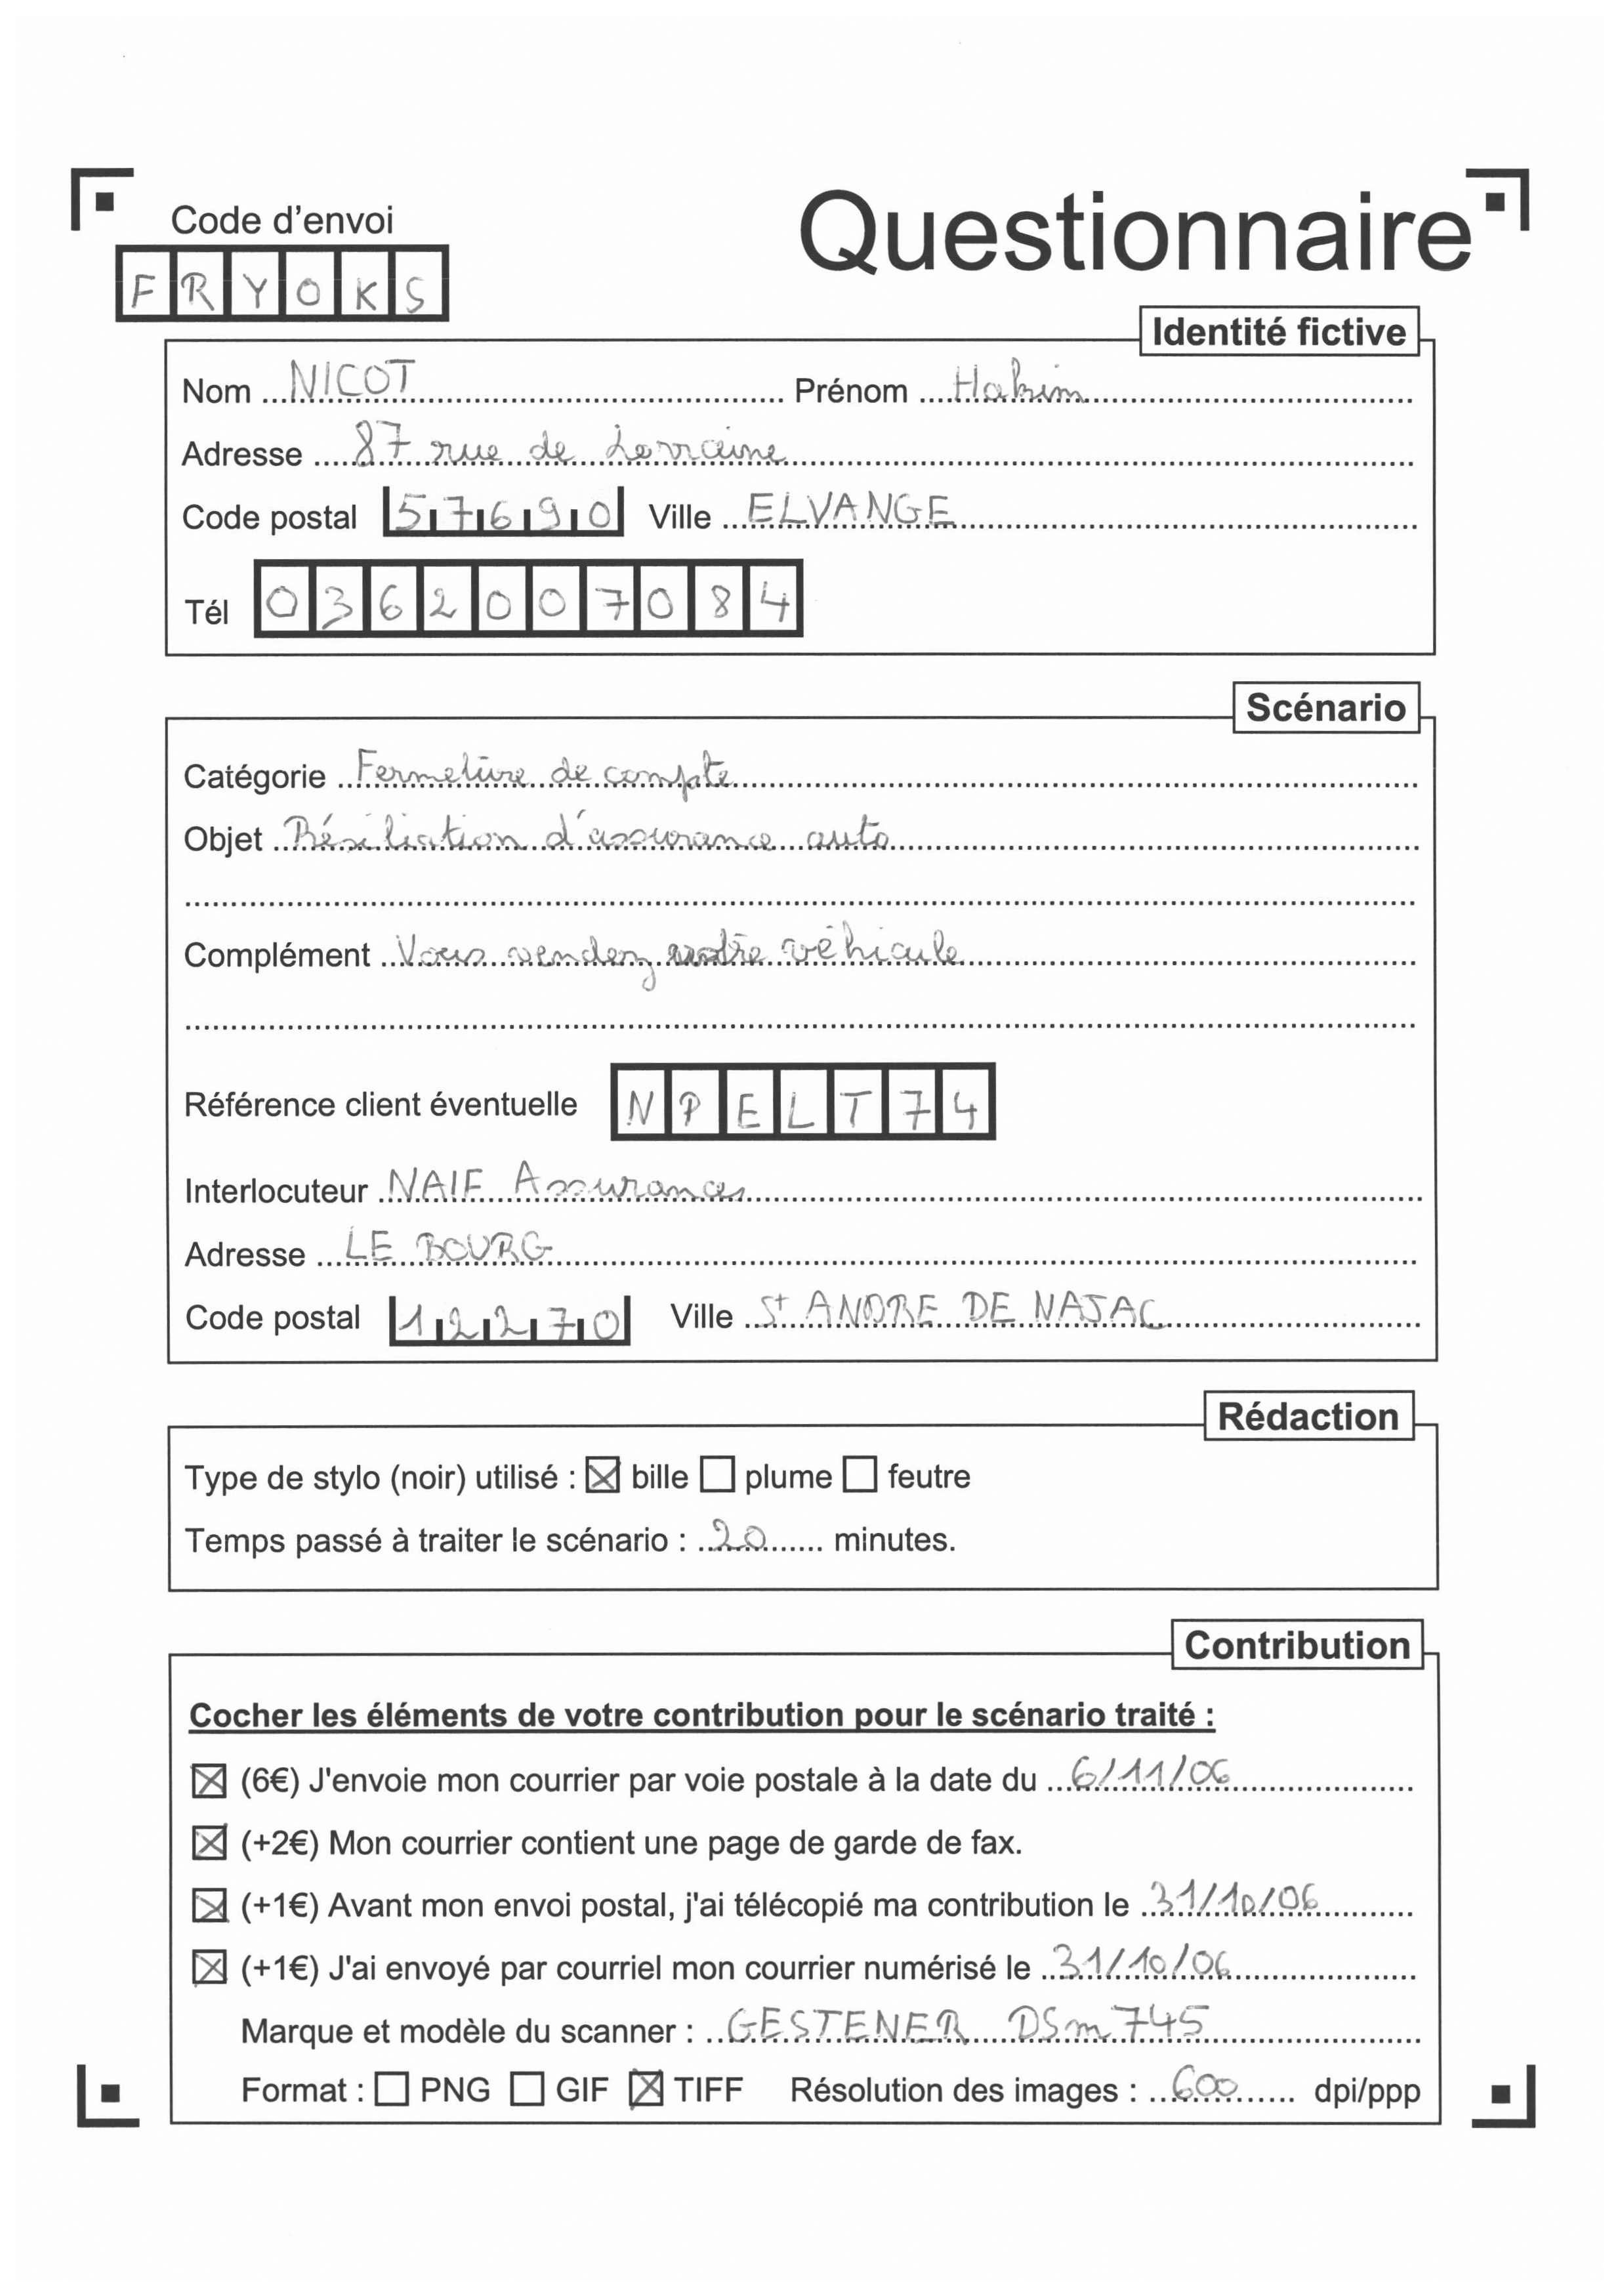 Code d'envoi
Questionnaire
FRYOKS
Identité fictive
Nom NICOT Prénom Hakim
Adresse 87 rue de Lorraine
Code postal 57690 Ville ELVANGE
Tél 0362007084
Scénario
Catégorie Fermeture de compte
Objet Résiliation d'assurance auto
Complément Vous vendez votre véhicule
Référence client éventuelle NPELT74
Interlocuteur NAIF Assurances
Adresse LE BOURG
Code postal 12270 Ville St ANDRE DE NAJAC
Rédaction
Type de stylo (noir) utilisé : ☒ bille ☐ plume ☐ feutre
Temps passé à traiter le scénario : 20 minutes.
Contribution
Cocher les éléments de votre contribution pour le scénario traité :
☒ (6€) J'envoie mon courrier par voie postale à la date du 6/11/06
☒ (+2€) Mon courrier contient une page de garde de fax.
☒ (+1€) Avant mon envoi postal, j'ai télécopié ma contribution le 31/10/06
☒ (+1€) J'ai envoyé par courriel mon courrier numérisé le 31/10/06
Marque et modèle du scanner : GESTENER DSm 745
Format : ☐ PNG ☐ GIF ☒ TIFF Résolution des images : 600 dpi/ppp